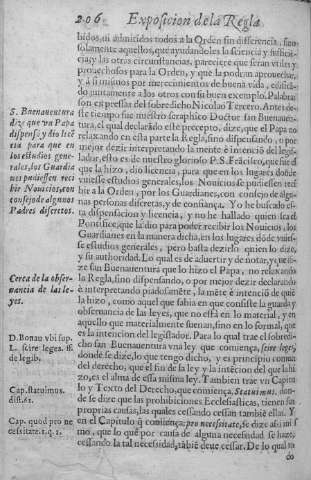 206 Exposicion de la Regla
bidos, ni admitidos todos a la Orden sin differencia, sino
solamente aquellos, que ayudandoles la sciencia y sufficie-
cia, y las otras circunstancias, pareciere que seran vtiles y
prouechosos para la Orden, y que la podran aprouechar,
y à si mismos por merecimientos de buena vida, edificã-
do juntamente a los otros con su buen exemplo. Palabras
son expressas del sobredicho Nicolao Tercero. Antes de-
ste tiempo fue nuestro seraphico Doctor San Buenauen-
tura, el qual declarado este precepto, dize, que el Papa no
relaxando en esta parte la Regla, sino dispensando, o por
mejor dezir interpretando la mente ê intenciõ del legis-
lador, esto es de nuestro glorioso P. S. Frãcisco, que fue el
que la hizo, dio licencia, para que en los lugares donde
vuiesse estudios generales, los Nouicios se pudiessen reci-
bir a la Orden, por los Guardianes, con consejo de algu-
nas personas discretas, y de confiança. Y o he buscado es-
ta dispensacion y licencia, y no he hallado quien sea el
Pontifice, que la dio para poder recibir los Nouicios, los
Guardianes en la manera dicha, en los lugares dõde vuies-
se estudios generales, pero basta dezirlo quien lo dize,
y su authoridad. Lo qual es de aduertir y de notar, y que di-
ze san Buenauentura que lo hizo el Papa, no relaxando
la Regla, sino dispensando, o por mejor dezir declarando
è interpretando piadosamẽte, la mẽte è intenciõ de quiẽ
la hizo, como aquel que sabia en que consiste la guarda y
obseruancia de las leyes, que no està en lo material, y en
aquello que materialmente suenan, sino en lo formal, que
es la intencion del legislador. Para lo qual trae el sobredi-
cho san Buenauentura vna ley, que comiença, scire leges,
donde se dize, lo que tengo dicho, y es principio comun
del derecho, que el fin de la ley y la intẽcion del que la hi-
zo, es el alma de essa misma ley. Tambien trae vn Capitu-
lo y Texto del Derecho, que comiença, Statuimus. don-
de se dize que las prohibiciones Ecclesiasticas, tienen sus
proprias causas, las quales cessando cessan tambiẽ ellas. Y
en el Capitulo q̃ comiença; pro necessitate, se dize assi mis-
mo, que lo que por causa de alguna necessidad se haze,
cessando la tal necessidad, tãbiẽ deue cessar. De lo qual ra-
do
S. Buenauentura
dize que vn Papa
dispensò y dio licẽ
cia para que en
los estudios gene-
rales, los Guardia
nes pudiessen reci
bir Nouicios, con
consejo de algunos
Padres discretos.
Cerca de la obser-
uancia de las le-
yes.
D. Bonau vbi sup.
L. scire leges. ff.
de legib.
Cap. statuimus.
dist. 61.
Cap. quod pro ne
cessitate. 1. q. 1.